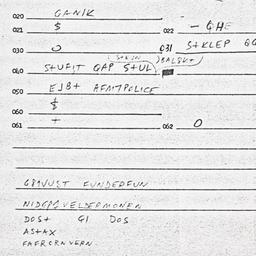 020 GANIK
021 $ 022 - GHE
030 0 031 STKLEP
040 STUFIT GAP STUL
050 EJBT AFMTPOLICE
$
060
061 + 062 0
GRAVUST FUNDERFUN
NIDERSVELDERMONEN
DOST GI DOS
ASTAX
FAFRCRNVERN